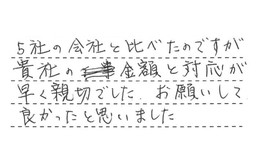 5社の会社と比べたのですが
貴社の金額と対応が
早く親切でした。お願いして
良かったと思いました